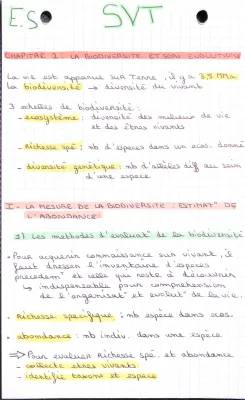 E.S
SVT
CHAPITRE 1 LA BIODIVERSITE ET SON EVOLUTION
La vie est apparue sur Terre, il y a 3,8 MMa
la biodiversité → diversité du vivant
3 échelles de biodiversité :
- écosystème : diversité des milieux de vie
et des êtres vivants
- richesse spé : nb d'espèces dans un écos. donné
- diversité génétique : nb d'allèles diff au sein
d'une espèce
I - LA MESURE DE LA BIODIVERSITE : ESTIMAT° DE
L'ABONDANCE
1) Les méthodes d'évaluat° de la biodiversité
• Pour acquérir connaissance sur vivant, il
faut dresser l'inventaire d'espèces
précédem^t et celle qui reste à découvrir
↳ indispensable pour compréhension
de l'organisat° et évolut° de la vie.
• Richesse spécifique : nb espèce dans écos.
• abondance : nb indiv. dans une espèce
⇒ Pour évaluer richesse spé. et abondance
- collecte êtres vivants
- identifie taxons et espèce